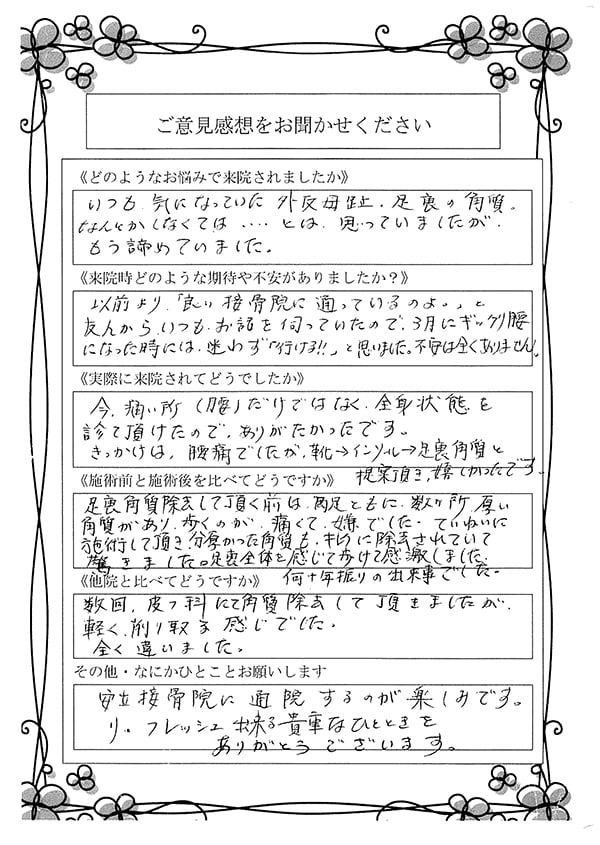 ご意見感想をお聞かせください
《どのようなお悩みで来院されましたか》
いつも気になっていた外反母趾、足裏の角質。
なんとかしなくては‥‥とは、思っていましたが、
もう諦めていました。
《来院時どのような期待や不安がありましたか？》
以前より、「良い接骨院に通っているのよ。」と
友人からいつもお話を伺っていたので、3月にギックリ腰
になった時には、迷わず「行ける!!」と思いました。不安は全くありません。
《実際に来院されてどうでしたか》
今、痛い所（腰）だけではなく、全身状態を
診て頂けたので、ありがたかったです。
きっかけは、腰痛でしたが、靴→インソール→足裏角質と
提案頂き、嬉しかったです。
《施術前と施術後を比べてどうですか》
足裏角質除去して頂く前は、両足ともに、数ヶ所、厚い
角質があり、歩くのが、痛くて、嫌でした。ていねいに
施術して頂き分厚かった角質も、キレイに除去されていて
驚きました。足裏全体を感じて歩けて感激しました。
何十年振りの出来事でした。
《他院と比べてどうですか》
数回、皮フ科にて角質除去して頂きましたが、
軽く、削り取る感じでした。
全く違いました。
その他・なにかひとことお願いします
安立接骨院に通院するのが楽しみです。
リ・フレッシュ出来る貴重なひとときを
ありがとうございます。